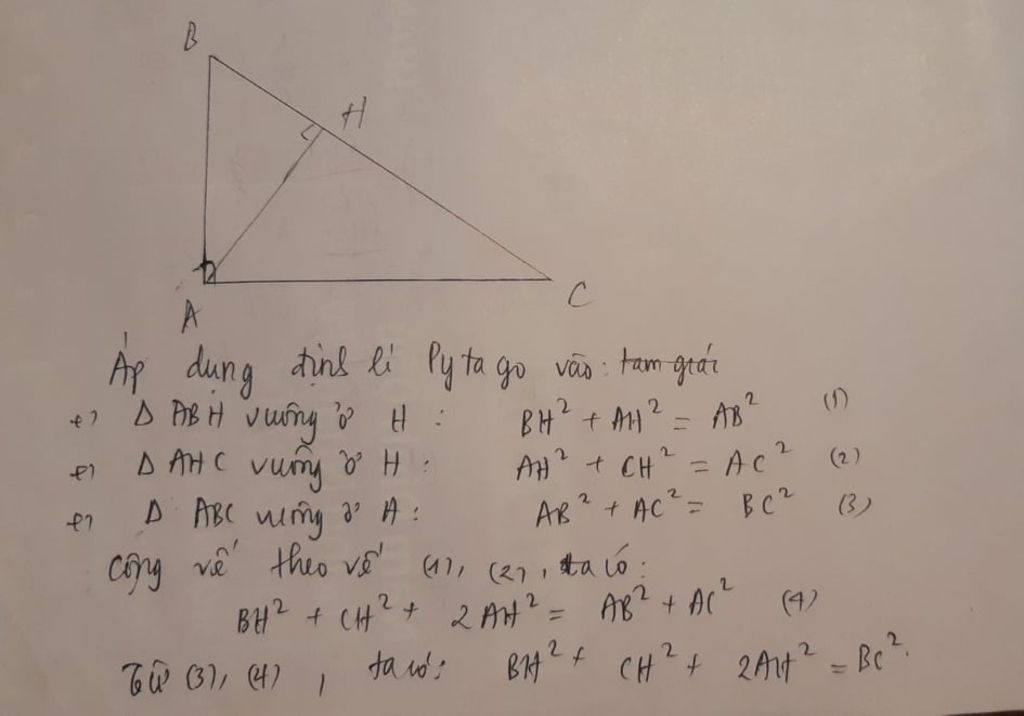 B
H
A
C
Áp dụng định lí Pytago vào: tam giác
+) Δ ABH vuông ở H : BH² + AH² = AB² (1)
+) Δ AHC vuông ở H : AH² + CH² = AC² (2)
+) Δ ABC vuông ở A : AB² + AC² = BC² (3)
Cộng vế theo vế (1), (2), ta có:
BH² + CH² + 2AH² = AB² + AC² (4)
Từ (3), (4), ta có: BH² + CH² + 2AH² = BC².